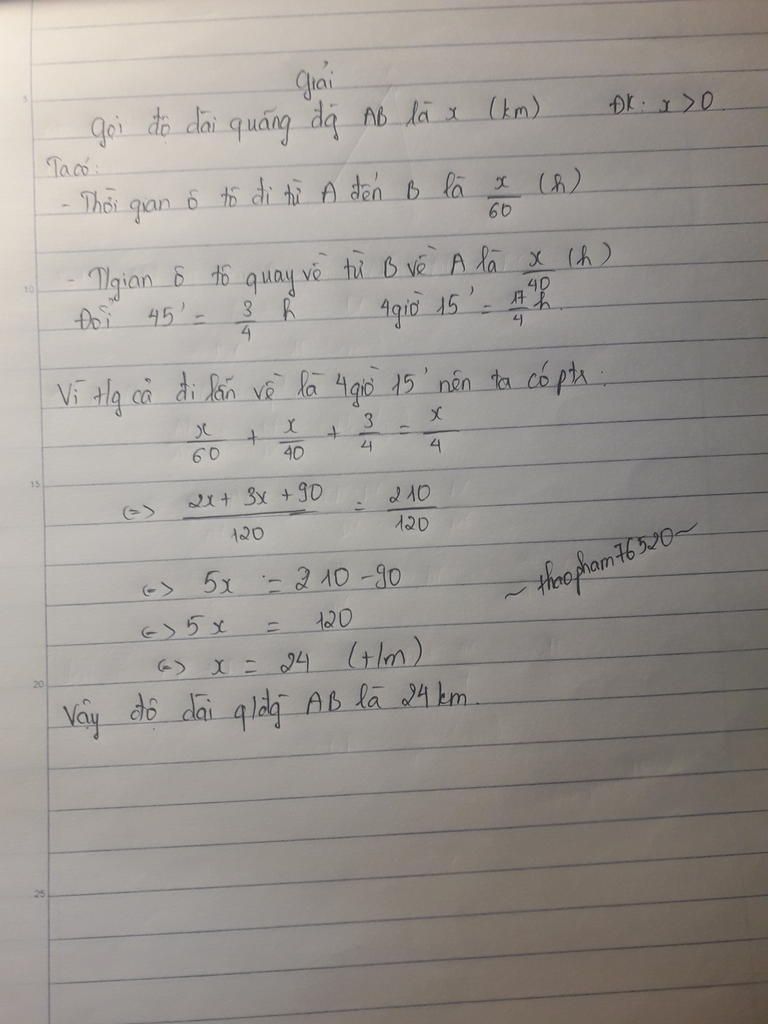 Giải
Gọi độ dài quãng đg AB là x (km) ĐK: x > 0
Ta có:
- Thời gian ô tô đi từ A đến B là x/60 (h)
- Tgian ô tô quay về từ B về A là x/40 (h)
Đổi 45' = 3/4 h 4 giờ 15' = 17/4 h.
Vì t/g cả đi lẫn về là 4 giờ 15' nên ta có ptr:
x/60 + x/40 + 3/4 = x/4
<=> (2x + 3x + 90)/120 = 210/120
<=> 5x = 210 - 90
<=> 5x = 120
~ thaopham76520 ~
<=> x = 24 (t/m)
Vậy độ dài q/đg AB là 24 km.
5
10
15
20
25